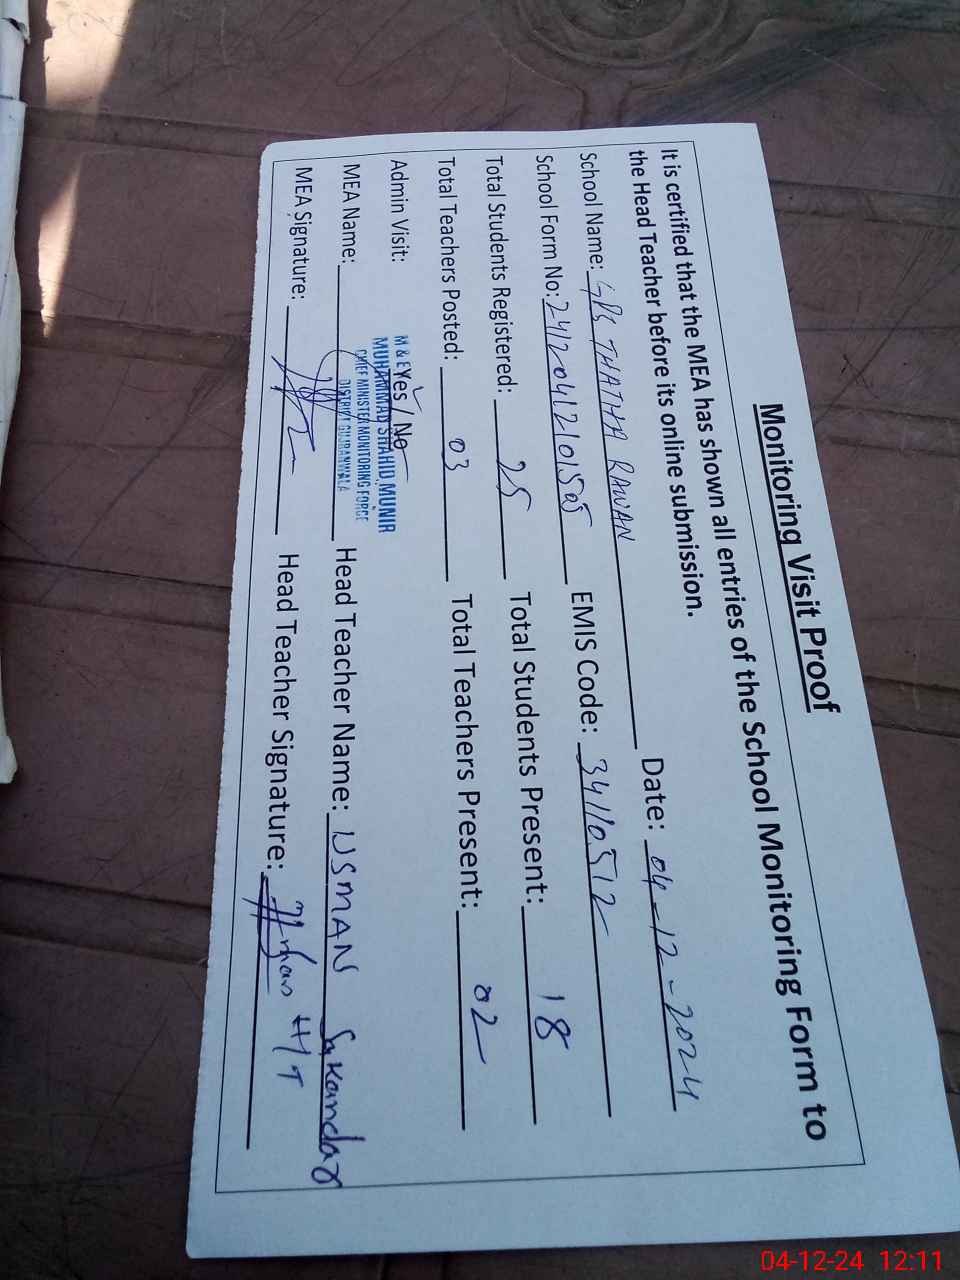 Monitoring Visit Proof
It is certified that the MEA has shown all entries of the School Monitoring Form to
the Head Teacher before its online submission.
School Name: GPS THATHA RAWAN Date: 04-12-2024
School Form No: 24120412101505 EMIS Code: 34110512
Total Students Registered: 25 Total Students Present: 18
Total Teachers Posted: 03 Total Teachers Present: 02
Admin Visit: Yes / No
M & E
MUHAMMAD SHAHID MUNIR
CHIEF MINISTER MONITORING FORCE
DISTRICT GUJRANWALA
MEA Name: Head Teacher Name: USMAN Sakandar
MEA Signature: Head Teacher Signature: H/T
04-12-24 12:11